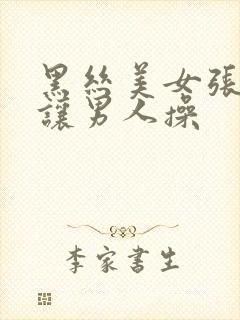 黑絲美女張
讓男人操
李家書生